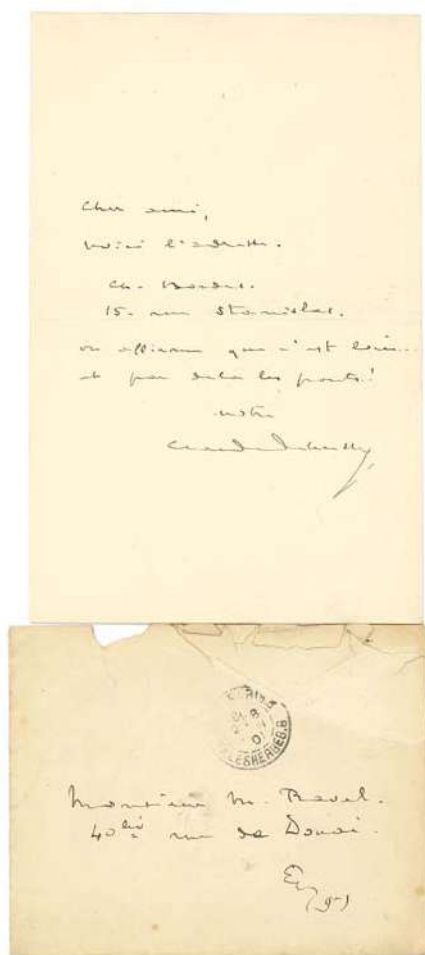 Cher ami,
voici l'adresse.
Ch. Bordes.
15. rue Stanislas.
on affirme que c'est loin...
et par delà les ponts!
votre
Claude Debussy
PARIS
8
01
MALESHERBES.B
Monsieur M. Ravel.
40 bis rue de Douai.